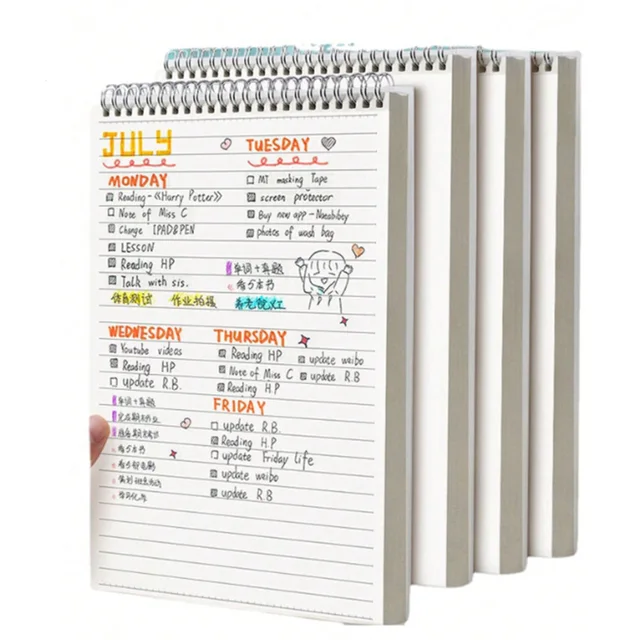 JULY
MONDAY
Reading-《Harry Potter》
Note of Miss C
Change IPAD&PEN
LESSON
Reading HP
Talk with sis.
体育测试 作业拍摄
TUESDAY
MT masking Tape
screen protector
Buy new app-Nanabibey
photos of wash bag
单词+真题
看5本书
WEDNESDAY
Youtube videos
Reading HP
update R.B.
单词+真题
看5本书
THURSDAY
Reading HP
Note of Miss C
Reading H.P
update weibo
update R.B
FRIDAY
update R.B.
Reading H.P
update Friday life
update weibo
update R.B